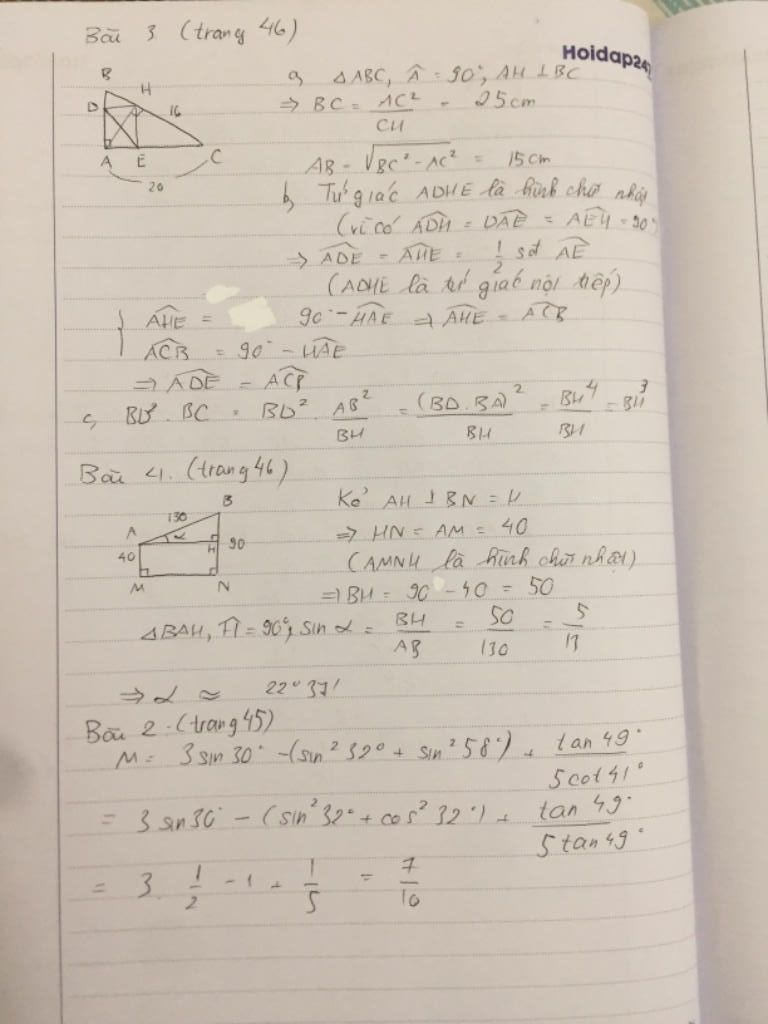 Bài 3 (trang 46)
Hoidap247
B
H
D
16
A E C
20
a, ΔABC, Â = 90°, AH ⊥ BC
⇒ BC = AC²/CH = 25cm
AB = √(BC² - AC²) = 15cm
b, Tứ giác ADHE là hình chữ nhật
(vì có ADĤ = DAÊ = AEĤ = 90°)
⇒ ADÊ = AHÊ = 1/2 sđ AE
(ADHE là tứ giác nội tiếp)
{ AHÊ = 90° - HAÊ ⇒ AHÊ = ACB̂
ACB̂ = 90° - HAÊ
⇒ ADÊ = ACB̂
c, BD². BC = BD². AB²/BH = (BD.BA)²/BH = BH⁴/BH = BH³
Bài 4. (trang 46)
B
130
A α
40 H 90
M N
Kẻ AH ⊥ BN = H
⇒ HN = AM = 40
(AMNH là hình chữ nhật)
⇒ BH = 90 - 40 = 50
ΔBAH, Ĥ = 90°, sin α = BH/AB = 50/130 = 5/13
⇒ α ≈ 22°37'
Bài 2. (trang 45)
M = 3 sin 30° - (sin² 32° + sin² 58°) + tan 49°/5 cot 41°
= 3 sin 30° - (sin² 32° + cos² 32°) + tan 49°/5 tan 49°
= 3. 1/2 - 1 + 1/5 = 7/10